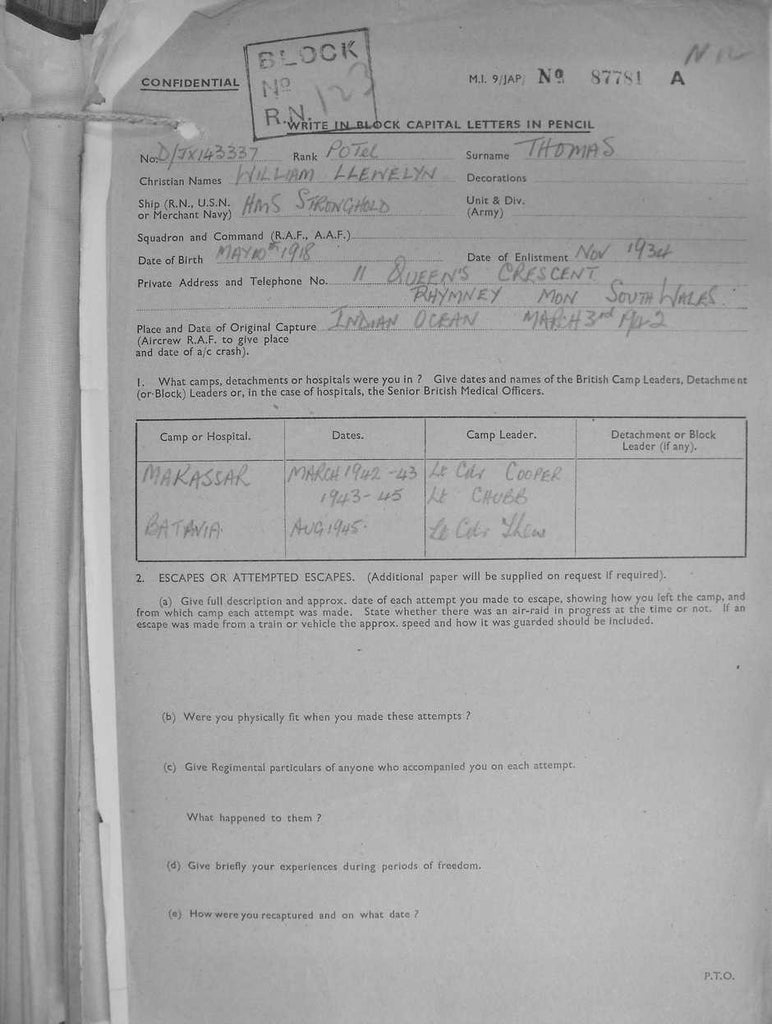 BLOCK
Nº 122
R.N.
CONFIDENTIAL
M.I. 9/JAP/ Nº 87781 A
WRITE IN BLOCK CAPITAL LETTERS IN PENCIL
No. D/JX143337 Rank POTel Surname THOMAS
Christian Names WILLIAM LLEWELYN Decorations
Ship (R.N., U.S.N. or Merchant Navy) HMS STRONGHOLD Unit & Div. (Army)
Squadron and Command (R.A.F., A.A.F.)
Date of Birth MAY 10th 1918 Date of Enlistment NOV 1934
Private Address and Telephone No. 11 QUEEN'S CRESCENT
RHYMNEY MON SOUTH WALES.
Place and Date of Original Capture INDIAN OCEAN MARCH 3rd 1942
(Aircrew R.A.F. to give place
and date of a/c crash).
1. What camps, detachments or hospitals were you in ? Give dates and names of the British Camp Leaders, Detachment
(or Block) Leaders or, in the case of hospitals, the Senior British Medical Officers.
Camp or Hospital. Dates. Camp Leader. Detachment or Block Leader (if any).
MAKASSAR MARCH 1942 -43 Lt Cdr COOPER
1943-45 Lt CHUBB
BATAVIA. AUG 1945. Lt Cdr
2. ESCAPES OR ATTEMPTED ESCAPES. (Additional paper will be supplied on request if required).
(a) Give full description and approx. date of each attempt you made to escape, showing how you left the camp, and
from which camp each attempt was made. State whether there was an air-raid in progress at the time or not. If an
escape was made from a train or vehicle the approx. speed and how it was guarded should be included.
(b) Were you physically fit when you made these attempts ?
(c) Give Regimental particulars of anyone who accompanied you on each attempt.
What happened to them ?
(d) Give briefly your experiences during periods of freedom.
(e) How were you recaptured and on what date ?
P.T.O.